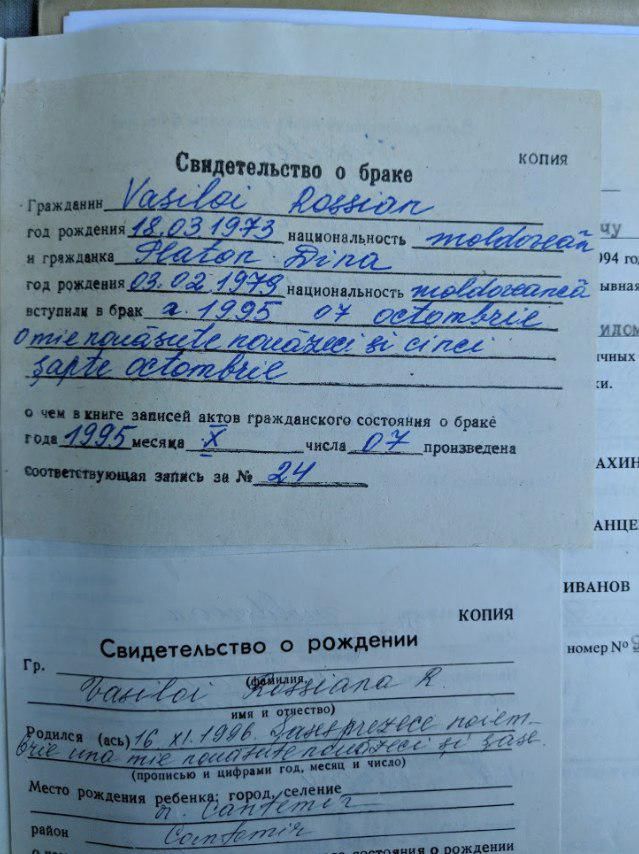 КОПИЯ
Свидетельство о браке
Гражданин Vasiloi Rossian
год рождения 18.03 1973 национальность moldovean
и гражданка Platon Dina
год рождения 03.02 1979 национальность moldoveancă
вступили в брак a. 1995 07 octombrie
O mie nouăsute nouăzeci și cinci
șapte octombrie
о чем в книге записей актов гражданского состояния о браке
года 1995 месяца X числа 07 произведена
соответствующая запись за № 24
чу
994 год
ывная
идом
ичных
ки.
АХИН
АНЦЕ
ИВАНОВ
номер №
КОПИЯ
Свидетельство о рождении
Гр.
(фамилия,
Vasiloi Rossiana R.
имя и отчество)
Родился (ась) 16 XI. 1996. Șasesprezece noiem-
brie una mie nouăsute nouăzeci și șase.
(прописью и цифрами год, месяц и число)
Место рождения ребенка: город, селение
r. Cantemir
район Cantemir
состояния о рождении